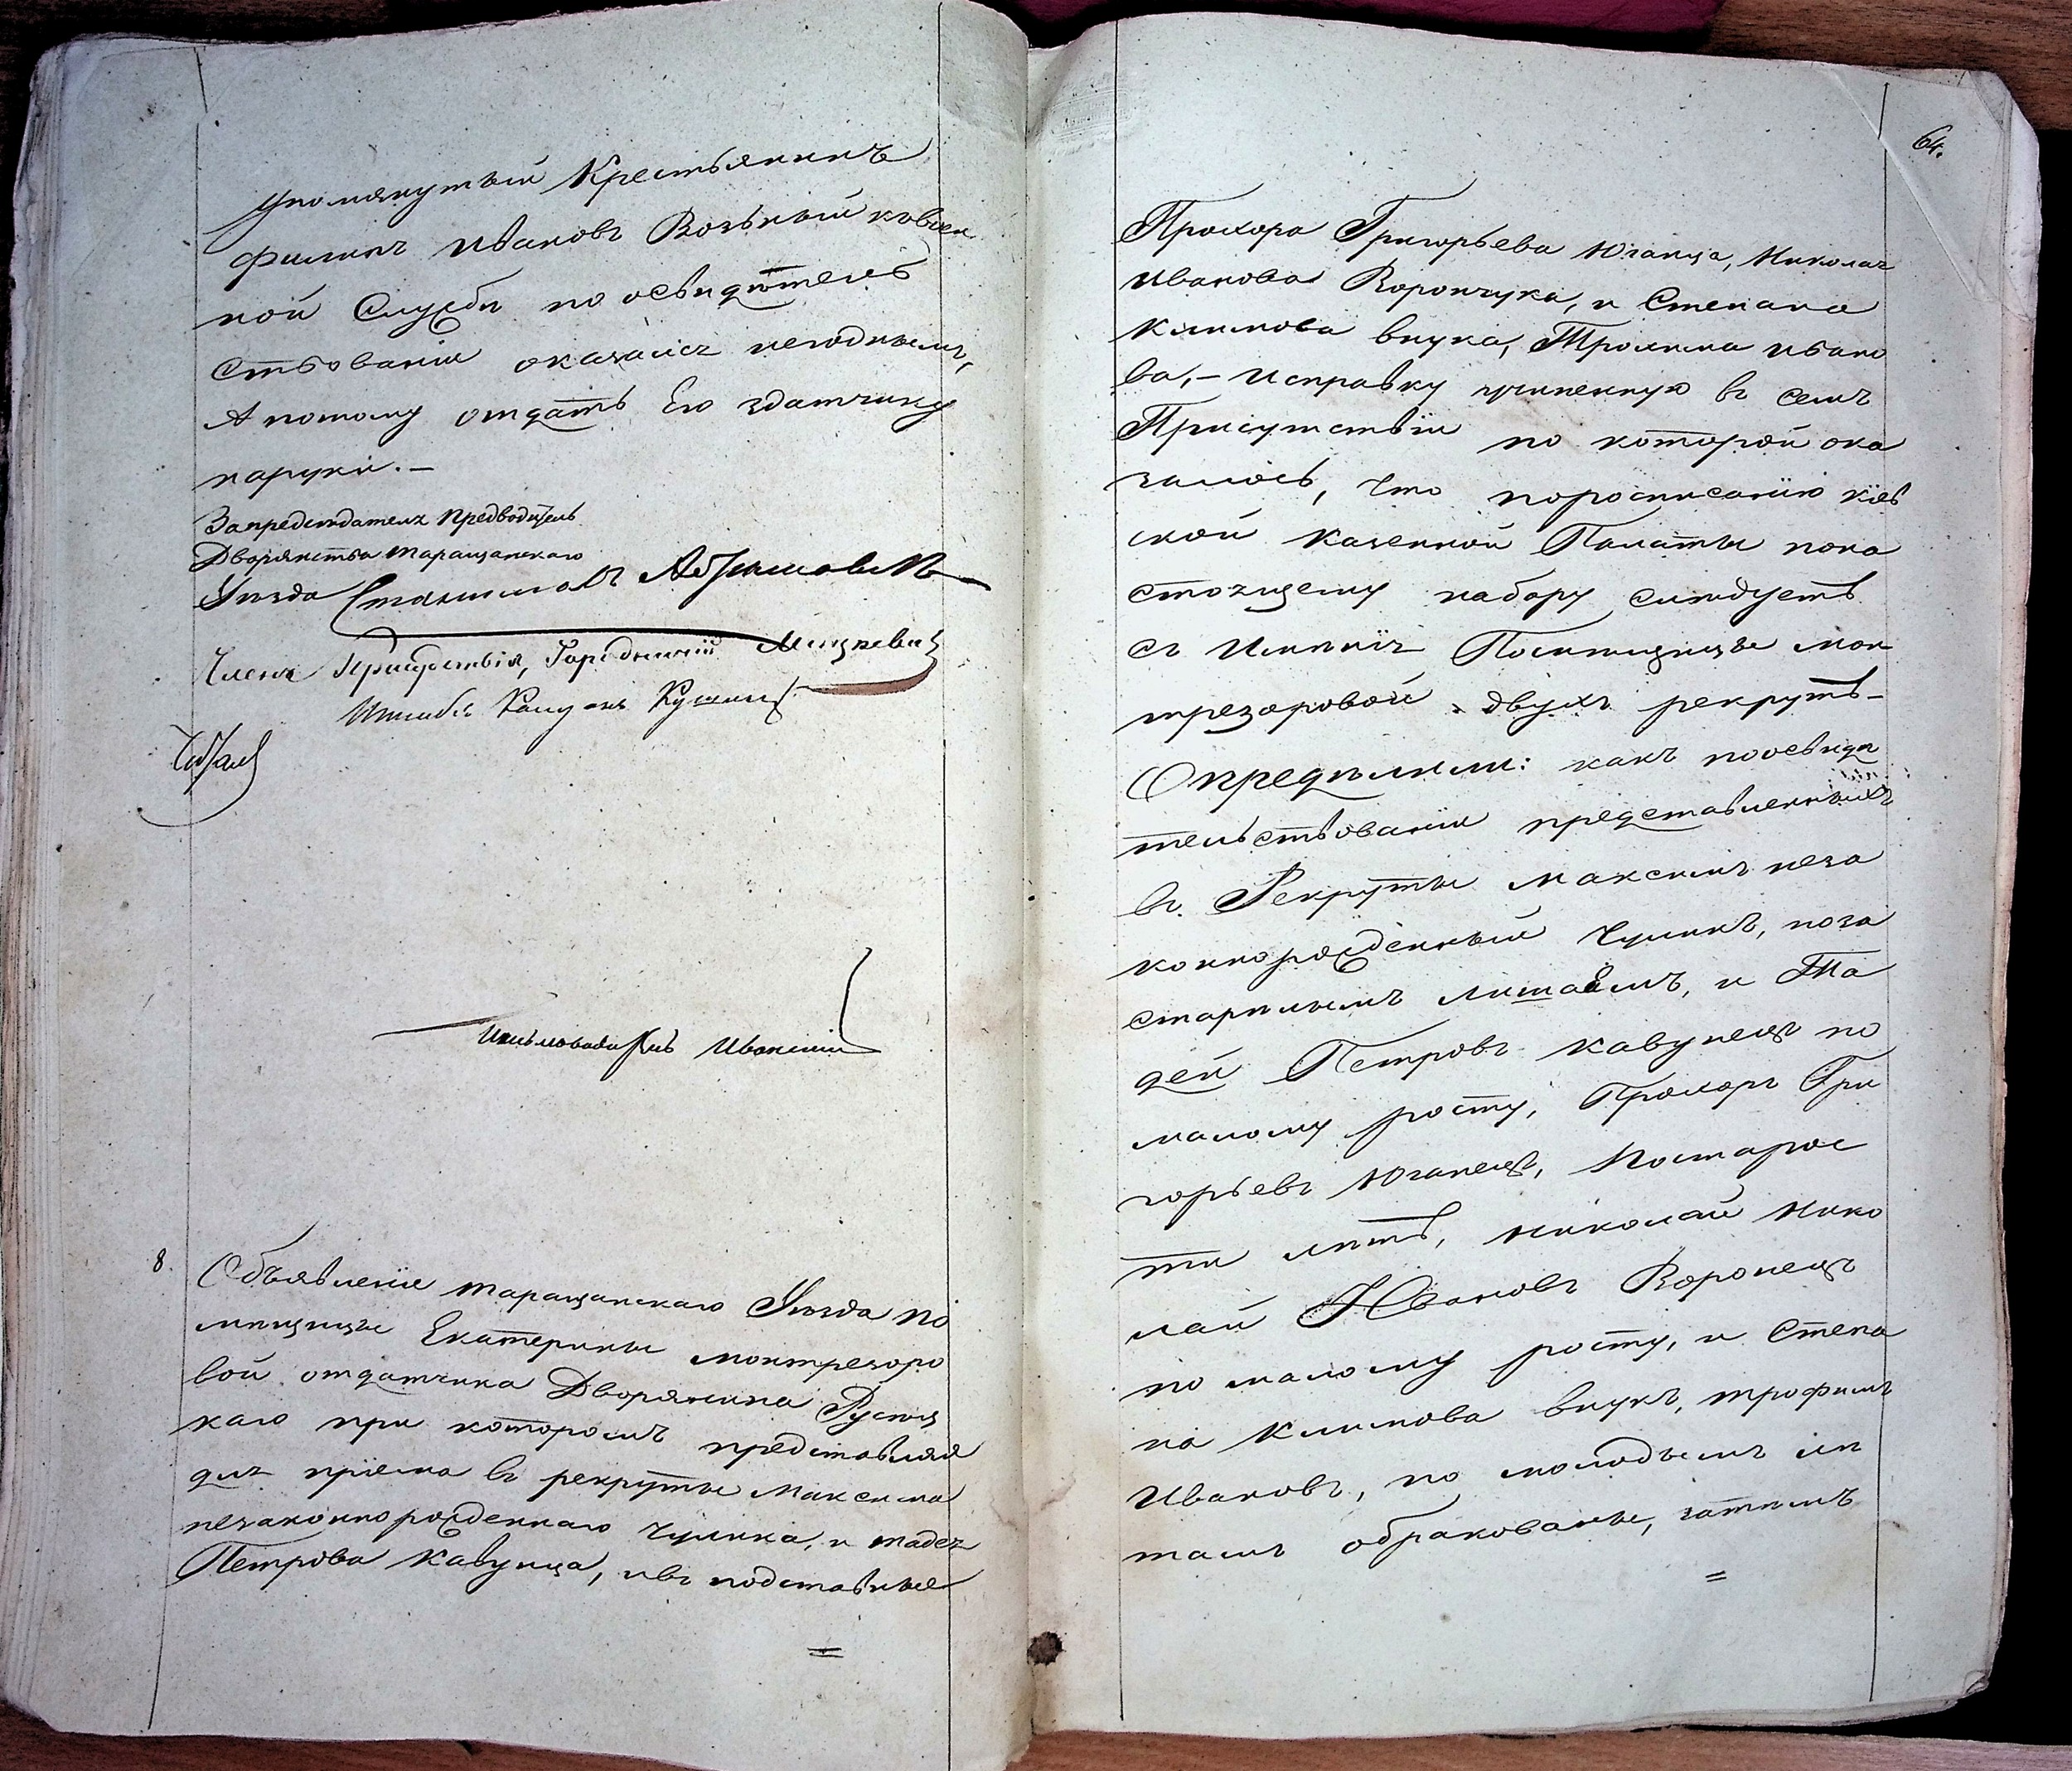 упомянутый Крестьянинъ
филипъ Ивановъ Возьный къвоен
ной Службѣ по освидѣтель
ствованіи оказался негоднымъ,
А потому отдать Его здатчику
наруки. —
Запредседателя Предводитель
Дворянства Таращанскаго
Уѣзда Станиславъ
Членъ Присудствія, Городничій
Штабъ
Письмоводитель Ивонскій
8. Объявленіе таращанскаго Уѣзда по
мѣщицы Екатерины монтрезоро
вой отдатчика Дворянина Русец
каго при которомъ представляя
для пріема въ рекруты Максима
незаконнорожденнаго Чумика, и тадея
Петрова Кавунца, ивъ подставные
=
64.
Прохора Григорьева Юганца, Николая
Иванова Ворончука, и Степана
Климова внука, Трохима ивано
ва, — и справку учиненную въ семъ
Присутствіи по которой ока
залось, что поросписанію кіев
ской казенной Палаты пона
стоящему набору слѣдуетъ
съ Имѣнія Помѣщицы мон
трезоровой двухъ рекрутъ —
Опредѣлили: какъ поосвидѣ
тельствованіи представленныхъ
въ Рекруты Максимъ неза
коннорожденный Чумикъ, поза
старѣлымъ лишаемъ, и Та
дей Петровъ Кавунецъ по
малому росту, Прохоръ Гри
горьевъ Юганецъ, Постарос
ти лѣтъ, николай Нико
лай Ивановъ Воронецъ
по малому росту, и Степа
на Климова внукъ, трофимъ
Ивановъ, по молодымъ лѣ
тамъ обракованы, затѣмъ
=